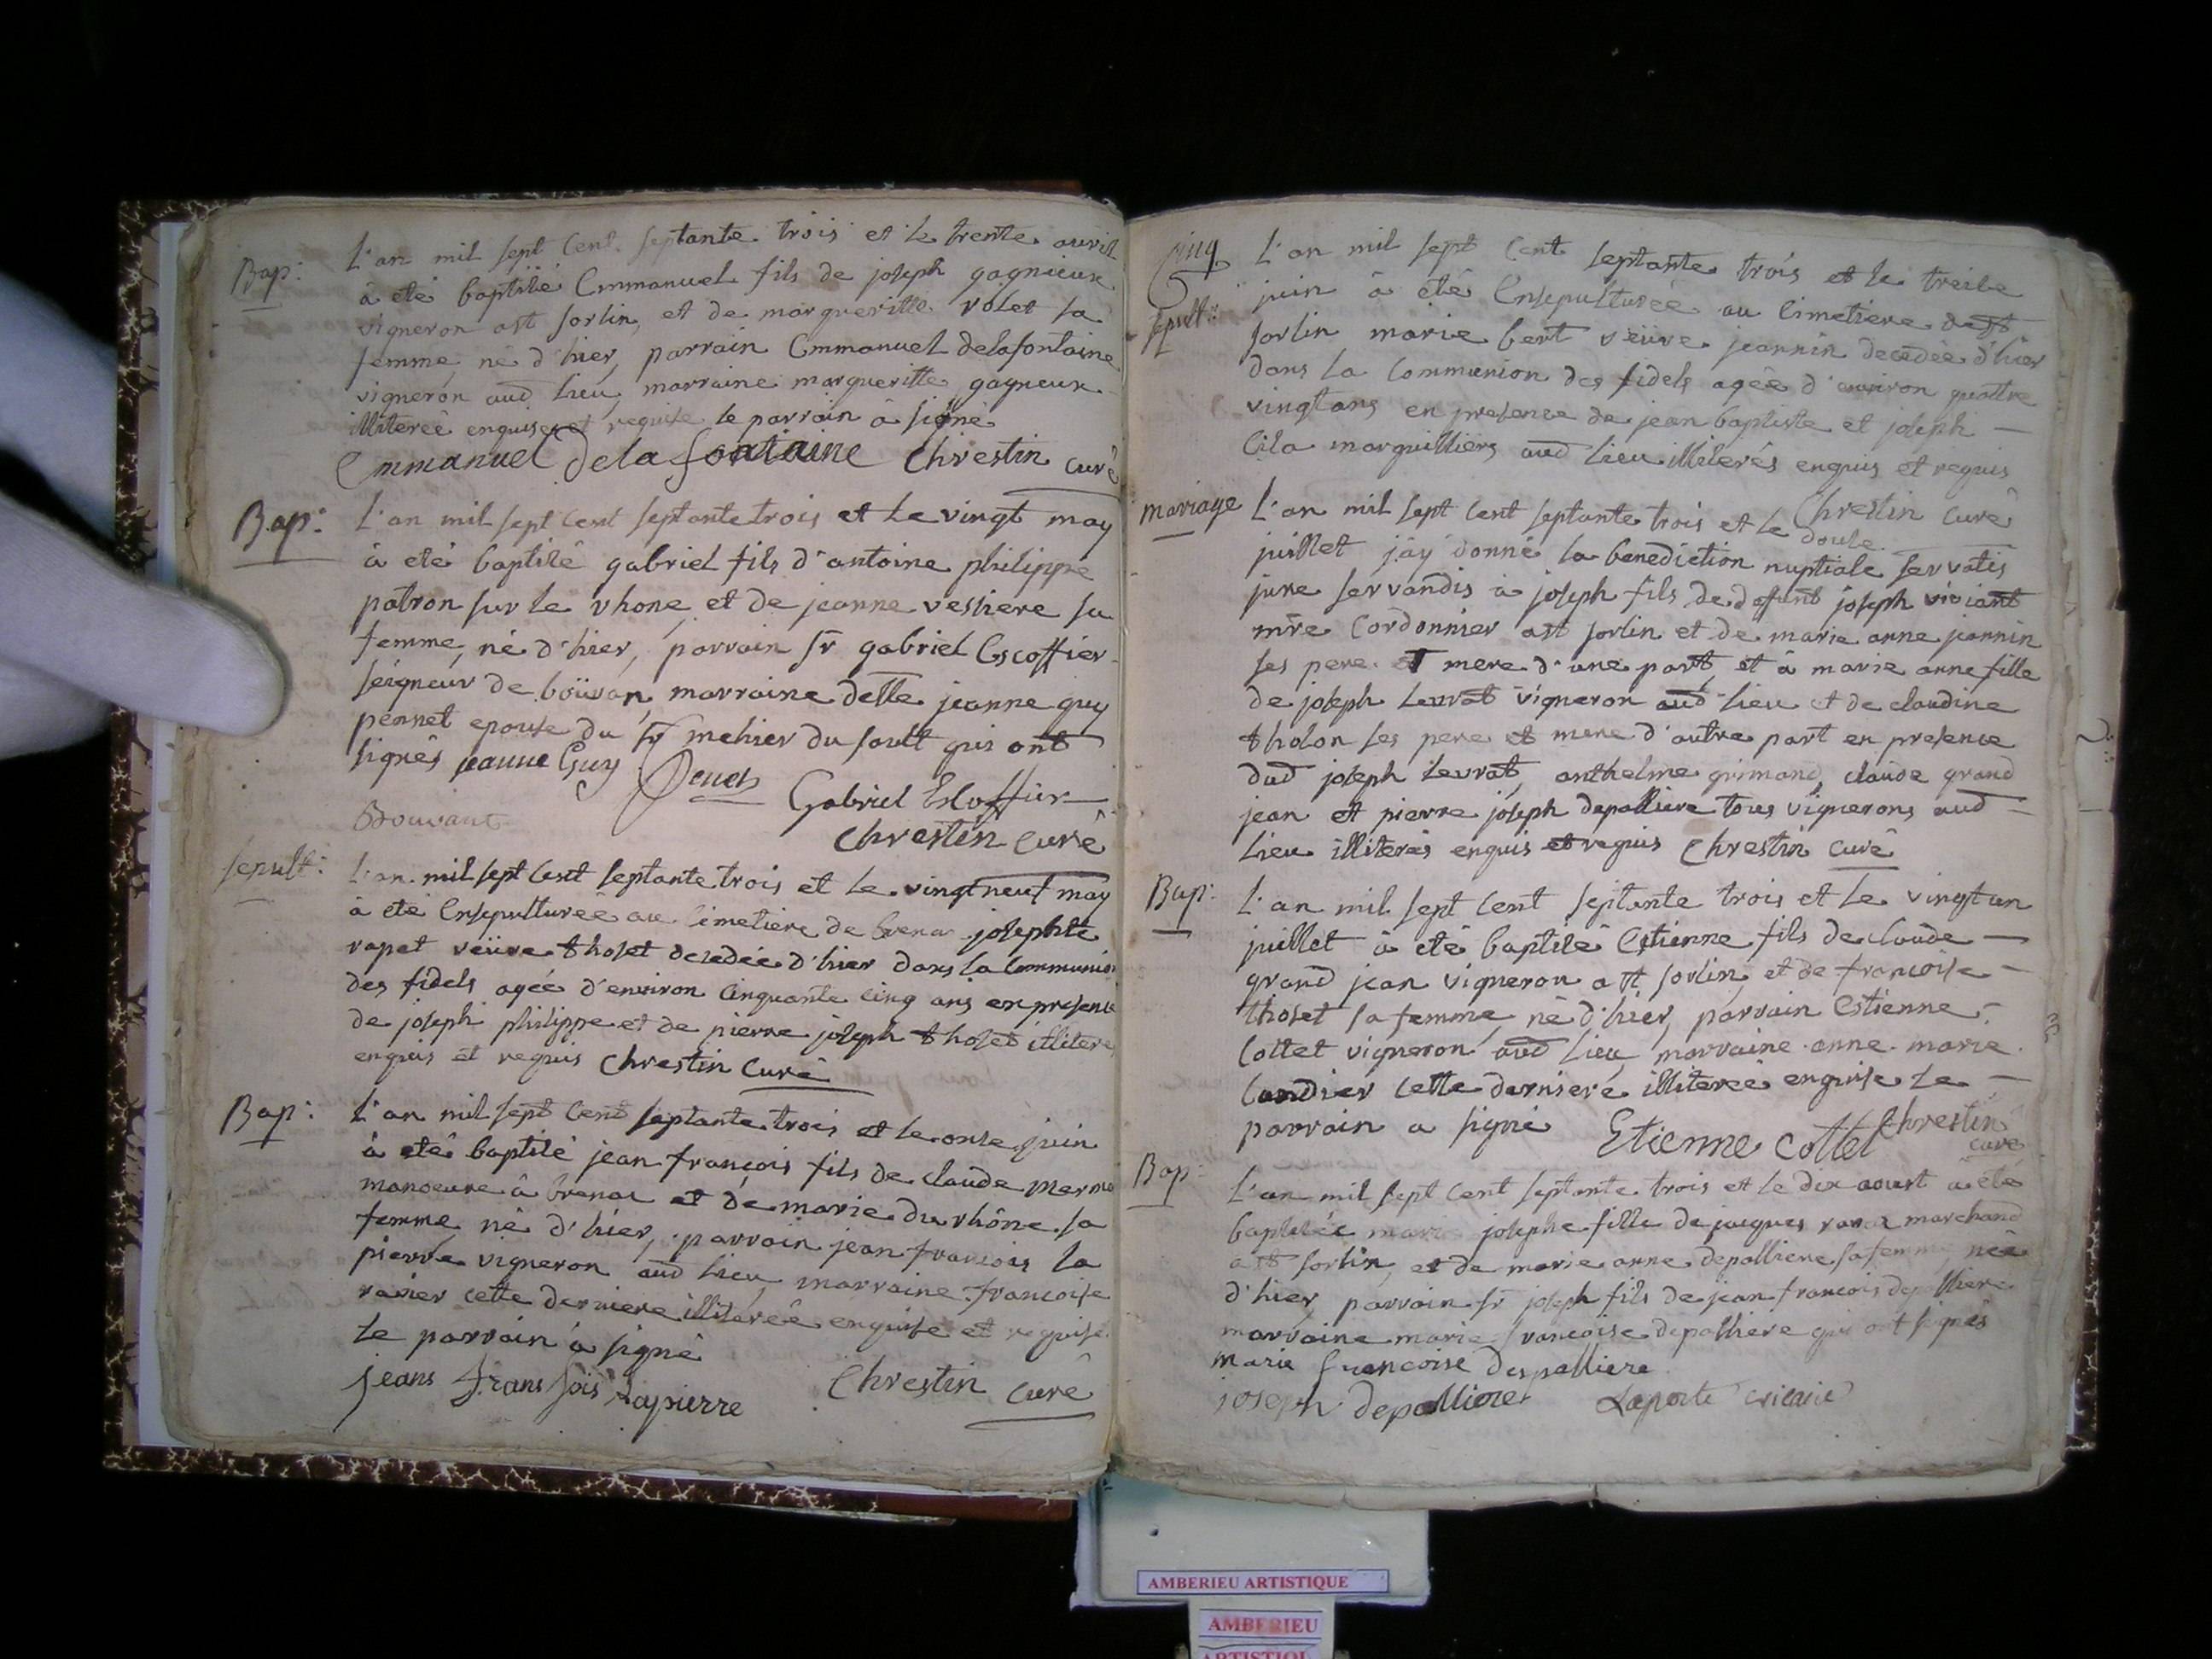 Bap:
L'an mil sept Cent septante trois et le trente avril
à eté baptisé Emmanuel fils de joseph gagnieux
vigneron a st sorlin, et de margueritte volet sa
femme, né d'hier, parrain Emmanuel delafontaine
vigneron aud lieu, marraine margueritte gagneux
illiterée enquise et requise le parrain à signé
Emmanuel Dela fontaine Chrestin curé
Bap:
L'an mil sept Cent septante trois et le vingt may
à eté baptisé gabriel fils d'antoine philippe
patron sur le rhone, et de jeanne vestiere sa
femme, né d'hier, parrain sr gabriel Escoffier
seigneur de boüvan, marraine delle jeanne guy
pennet epouse du sr mehier du soult qui ont
signés jeanne Guy
Gabriel Escoffier
Bouvant
Chrestin Curé
sepult:
L'an mil sept Cent septante trois et le vingt neuf may
à eté Ensepulturée au Cimetiere de brenaz josephte
rapet veüve thoset decedée d'hier dans la Communion
des fidels agée d'environ Cinquante Cinq ans en presence
de joseph philippe et de pierre joseph thoset illiterés
enquis et requis Chrestin Curé
Bap:
L'an mil sept Cent septante trois et le onse juin
à eté baptisé jean françois fils de claude mermet
manoeuvre à brenaz et de marie du rhône sa
femme, né d'hier, parrain jean francois la
pierre vigneron aud lieu, marraine francoise
ravier cette derniere illiterée enquise et requise
le parrain à signé
jeans frans sois Lapierre Chrestin Curé
Cinq
L'an mil sept Cent septante trois et le treise
sepult:
juin à étés Ensepulturée au Cimetiere de st
sorlin marie bert veüve jeannin decedée d'hier
dans la Communion des fidels agée d'environ quattre
vingt ans en presence de jean baptiste et joseph
Cila marguilliers aud lieu illiterés enquis et requis
Chrestin Curé
mariage
L'an mil sept Cent septante trois et le douse
juillet j'ay donné la benediction nuptiale servatis
jure servandis à joseph fils de deffunt joseph viviant
mre Cordonnier a st sorlin et de marie anne jeannin
ses pere et mere d'une part, et à marie anne fille
de joseph Levrat vigneron aud lieu et de claudine
tholon ses pere et mere d'autre part en presence
dud joseph Levrat, anthelme grimand, claude grand
jean et pierre joseph depalliere tous vignerons aud
lieu illiterés enquis et requis Chrestin Curé
Bap:
L'an mil sept Cent septante trois et le vingt un
juillet à eté baptisé Estienne fils de claude
grand jean vigneron a st sorlin, et de francoise
thoset sa femme, né d'hier, parrain Estienne
Cottet vigneron aud lieu, marraine anne marie
cette derniere illiterée enquise le
parrain a signé Etienne Cottet Chrestin
curé
Bap:
L'an mil sept Cent septante trois et le dix aoust à eté
baptisée marie josephe fille de jacques marchand
a st sorlin, et de marie anne depalliere sa femme, née
d'hier, parrain sr joseph fils de jean francois depalliere
marraine marie francoise depalliere qui ont signés
marie francoise depalliere
joseph depalliere Laporte vicaire
AMBERIEU ARTISTIQUE
AMBERIEU
ARTISTIQUE